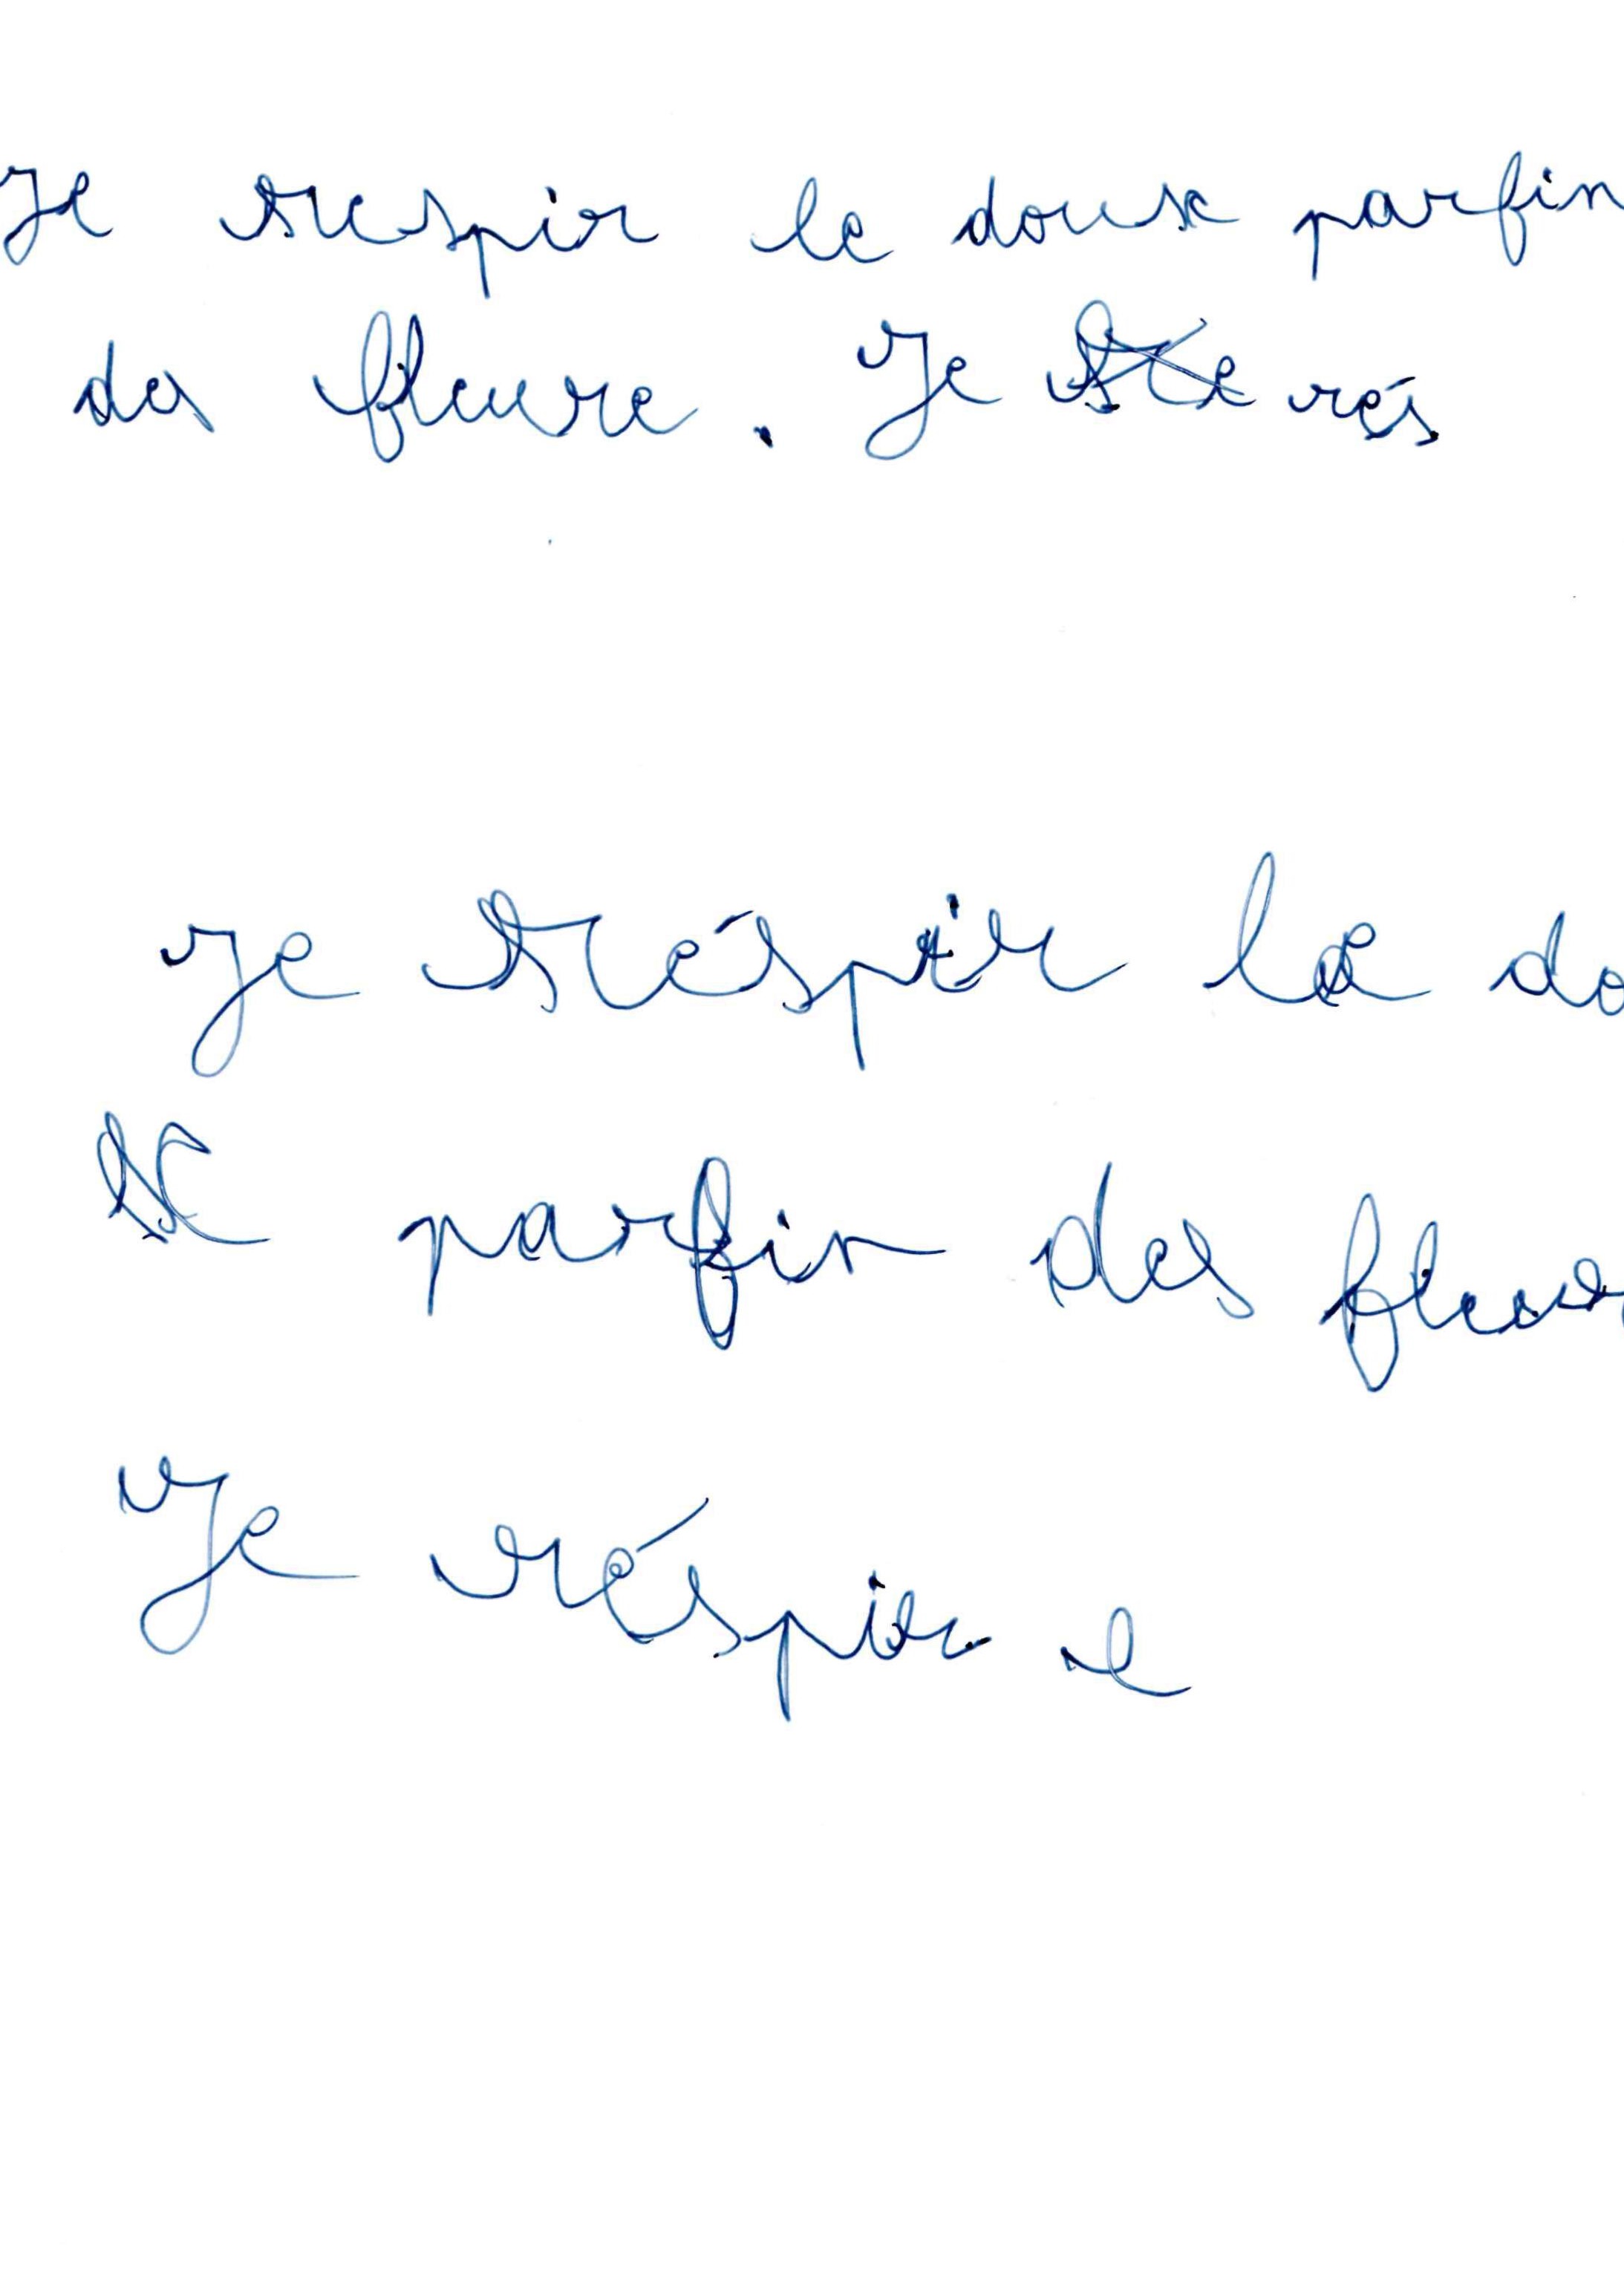 Je respir le doux parfin
des fleure. Je rés
je réspir le do
parfin des fleue
Je réspir e